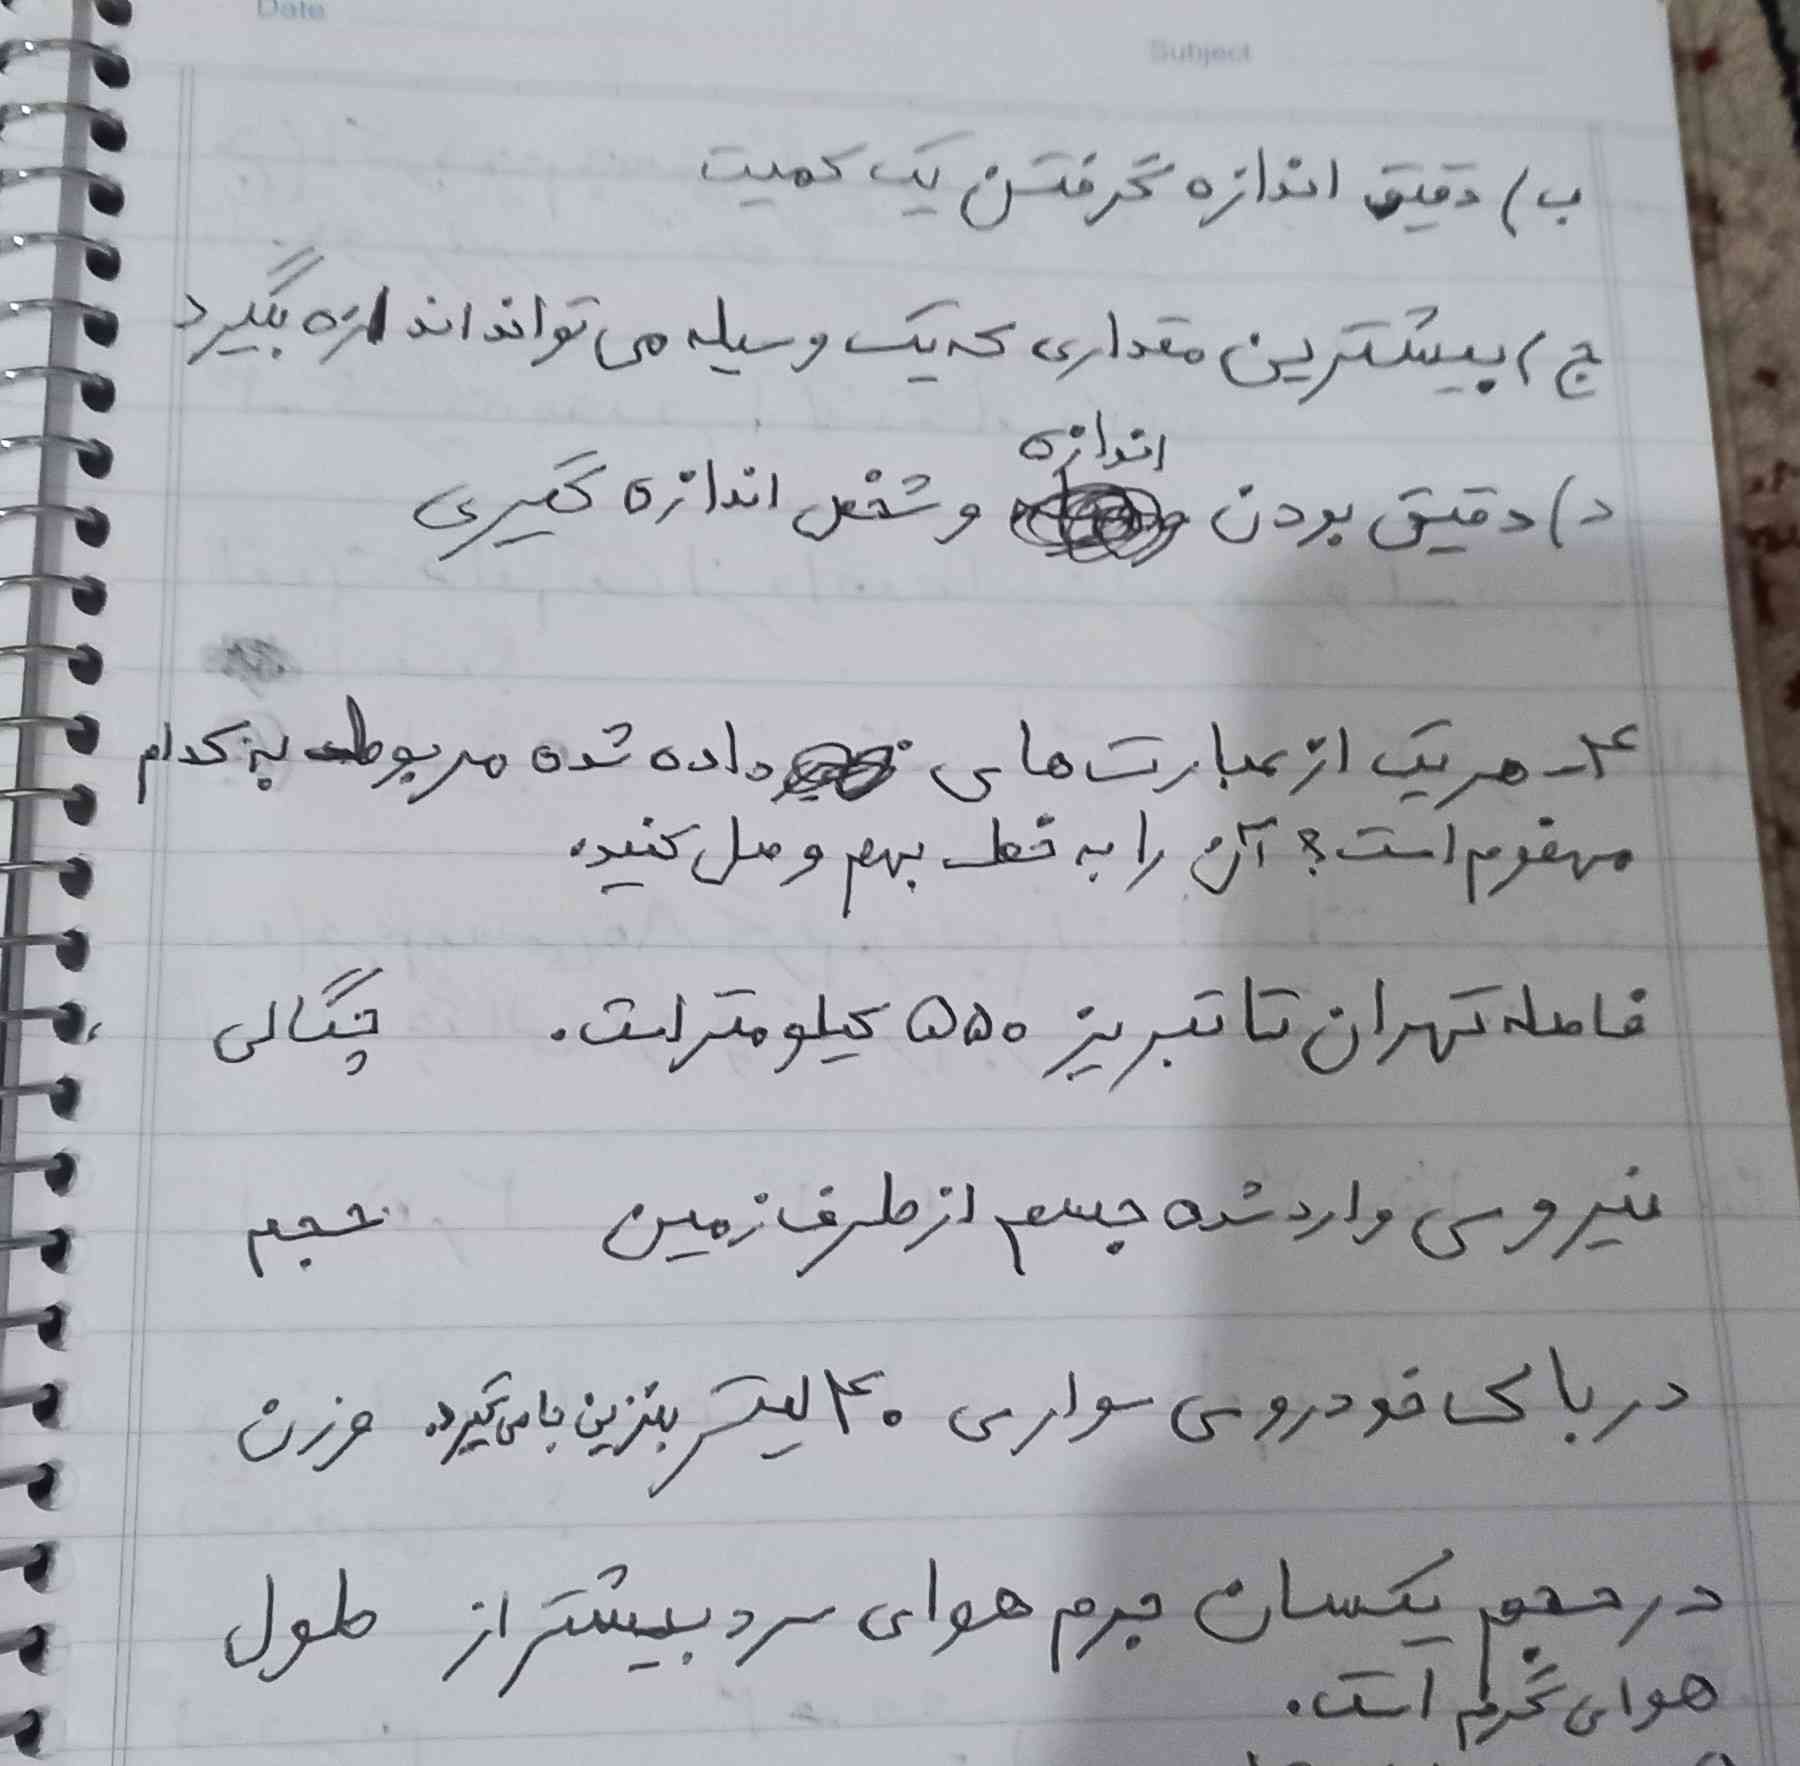 Date
Subject
ب) دقیق اندازه گرفتن یک کمیت
ج) بیشترین مقداری که یک وسیله می تواند اندازه بگیرد
اندازه
د) دقیق بودن و شخص اندازه گیری
۴- هر یک از عبارت های داده شده مربوط به کدام
مهفوم است؟ آن را به خط بهم وصل کنید.
فاصله تهران تا تبریز ۵۵۰ کیلومتر است. چگالی
نیروی وارد شده جسم از طرف زمین حجم
در باک خودروی سواری ۴۰ لیتر بنزین جا می گیرد. وزن
در حجم یکسان جرم هوای سرد بیشتر از طول
هوای گرم است.